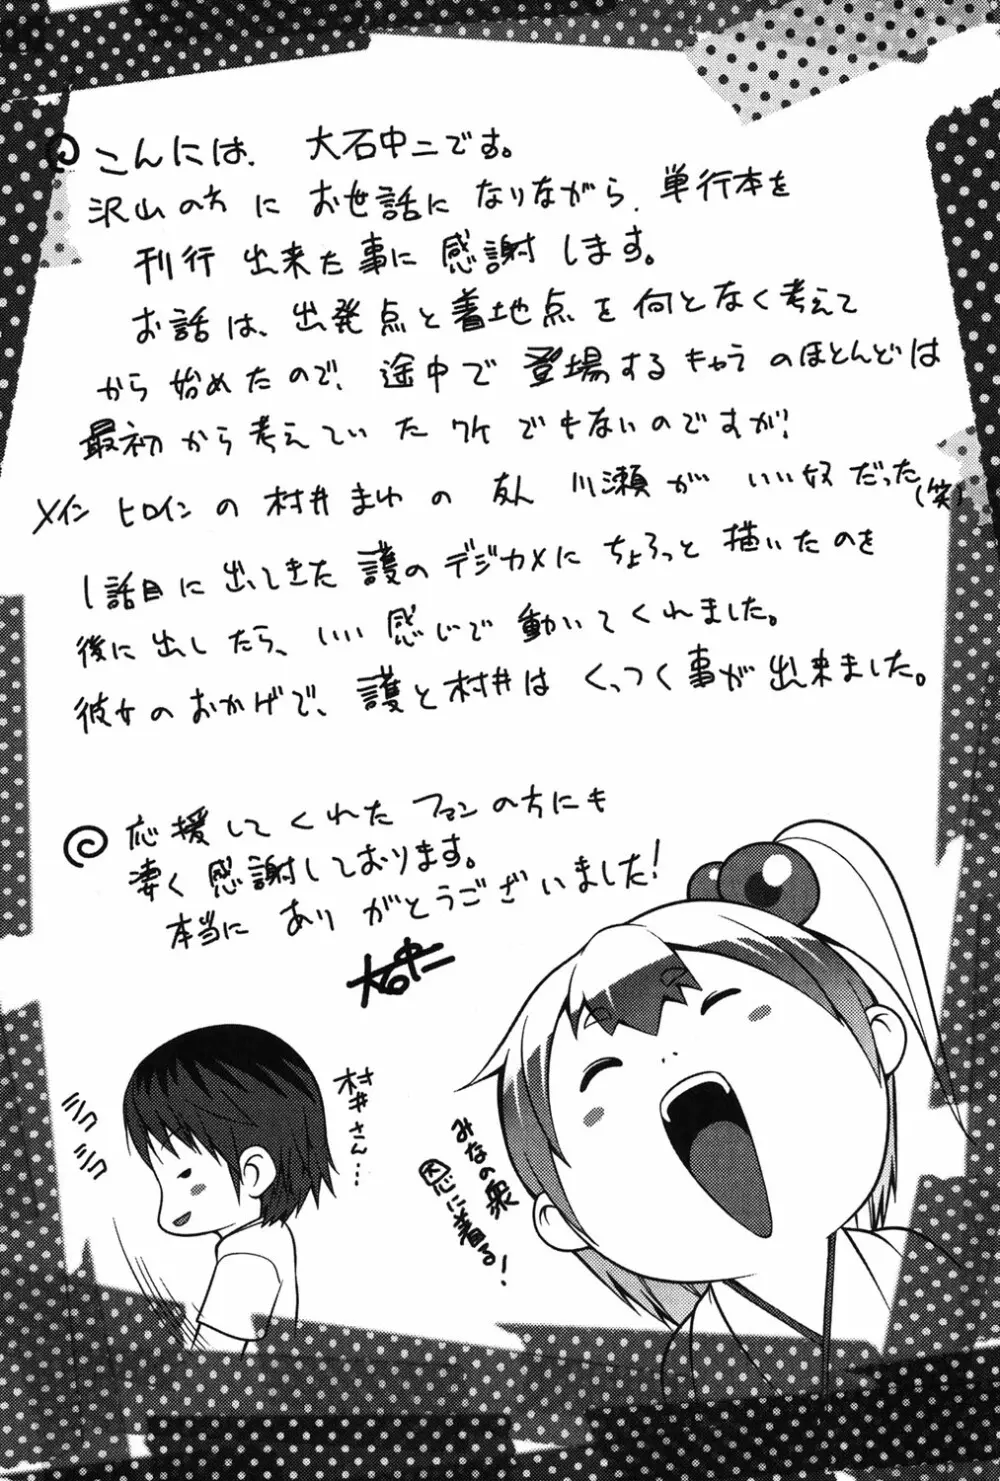 こんには、 大石中二です。
沢山の方に お世話に なりながら、単行本を
刊行 出来た事に 感謝 します。
お話は、出発点と着地点を何となく考えて
から 始めたので、途中で登場するキャラのほとんどは
最初から考えていたワケでもないのですが！
メイン ヒロインの 村井まゆの 友人 川瀬が いい奴だった（笑）
1話目に出てきた 護のデジカメにちょろっと描いたのを
後に出したら、いい感じで 動いてくれました。
彼女のおかげで、護と村井は くっつく事が出来ました。
応援してくれた ファンの方にも
凄く感謝しております。
本当に ありがとうございました！
大石中二
村井さん…
ミコミコ
みなの衆
恩に着る！